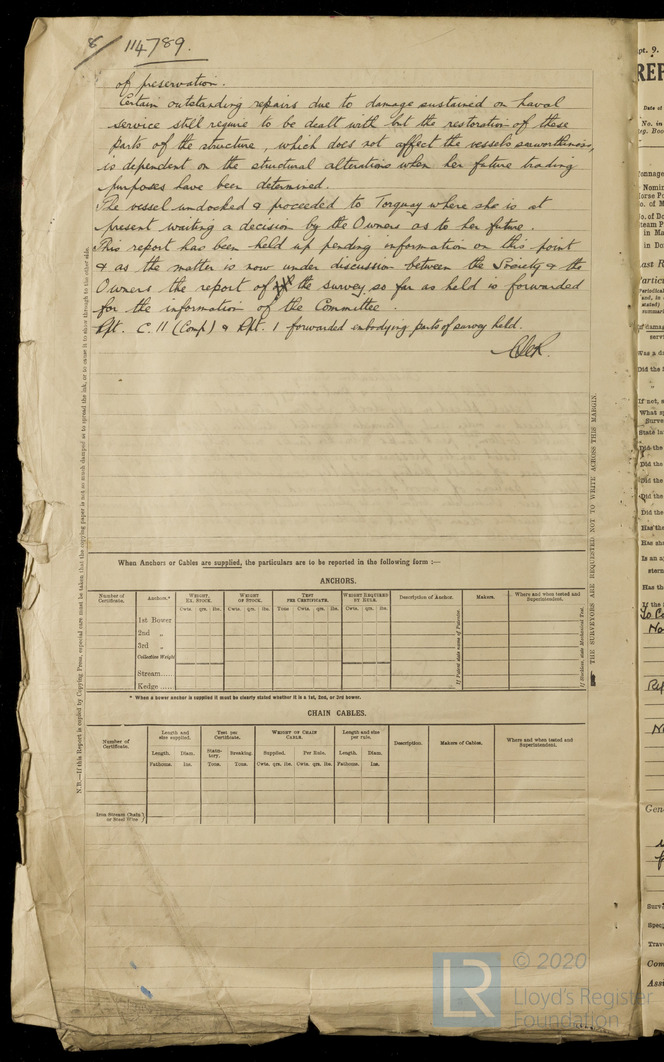 8/ 114789.
of preservation.
Certain outstanding repairs due to damage sustained on naval
service still require to be dealt with but the restoration of these
parts of the structure, which does not affect the vessels seaworthiness,
is dependent on the structural alterations when her future trading
purposes have been determined.
The vessel undocked & proceeded to Torquay where she is at
present waiting a decision by the Owners as to her future.
This report has been held up pending information on this point
& as the matter is now under discussion between the Society & the
Owners the report of the survey so far as held is forwarded
for the information of the Committee.
Rpt. C. 11 (Comp) & Rpt. 1 forwarded embodying parts of survey held.
N.B.—If this Report is copied by Copying Press, especial care must be taken that the copying paper is not so much damped as to spread the ink, or to cause it to show through to the other side.
THE SURVEYORS ARE REQUESTED NOT TO WRITE ACROSS THIS MARGIN.
When Anchors or Cables are supplied, the particulars are to be reported in the following form :—
ANCHORS.
Number of Certificate. Anchors.* WEIGHT, EX. STOCK. WEIGHT OF STOCK. TEST PER CERTIFICATE. WEIGHT REQUIRED BY RULE. Description of Anchor. Makers. Where and when tested and Superintendent.
Cwts. qrs. lbs. Cwts. qrs. lbs. Tons Cwts. qrs. lbs. Cwts. qrs. lbs.
1st Bower
2nd „
3rd „
Collective Weight
Stream.....
Kedge .....
If Patent state name of Patentee.
If Stockless, state Mechanical Test.
* When a bower anchor is supplied it must be clearly stated whether it is a 1st, 2nd, or 3rd bower.
CHAIN CABLES.
Number of Certificate. Length and size supplied. Test per Certificate. WEIGHT OF CHAIN CABLE. Length and size per rule. Description. Makers of Cables. Where and when tested and Superintendent.
Length. Diam. Statutory. Breaking. Supplied. Per Rule. Length. Diam.
Fathoms. Ins. Tons. Tons. Cwts. qrs. lbs. Cwts. qrs. lbs. Fathoms. Ins.
Iron Stream Chain or Steel Wire
LR
© 2020
Lloyd's Register
Foundation